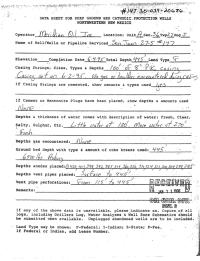 #147 30-039-20070
DATA SHEET FOR DEEP GROUND BED CATHODIC PROTECTION WELLS
NORTHWESTERN NEW MEXICO
Operator Meridian Oil Inc Location: Unit Sec. Twp 27 Rng 5
Name of Well/Wells or Pipeline Serviced San Juan 27-5 #147
Elevation Completion Date 6-4-95 Total Depth 445 Land Type F
Casing Strings, Sizes, Types & Depths 100' of 8" PVC Casing
Casing set on 6-2-95. No gas or
If Casing Strings are cemented, show amounts & types used yes
If Cement or Bentonite Plugs have been placed, show depths & amounts used
None
Depths & thickness of water zones with description of water: Fresh, Clear,
Salty, Sulphur, Etc. Little water at 100'. More water at 270'
Fresh
Depths gas encountered: None
Ground bed depth with type & amount of coke breeze used: 445
Depths anodes placed:
Depths vent pipes placed: Surface to 445'
Vent pipe perforations: From 115' to 445'
Remarks:
RECEIVED
OIL CONSERV. DIV.
If any of the above data is unavailable, please indicate so. Copies of all
logs, including Drillers Log, Water Analyses & Well Bore Schematics should
be submitted when available. Unplugged abandoned wells are to be included.
Land Type may be shown: F-Federal; I-Indian; S-State; P-Fee.
If Federal or Indian, add Lease Number.